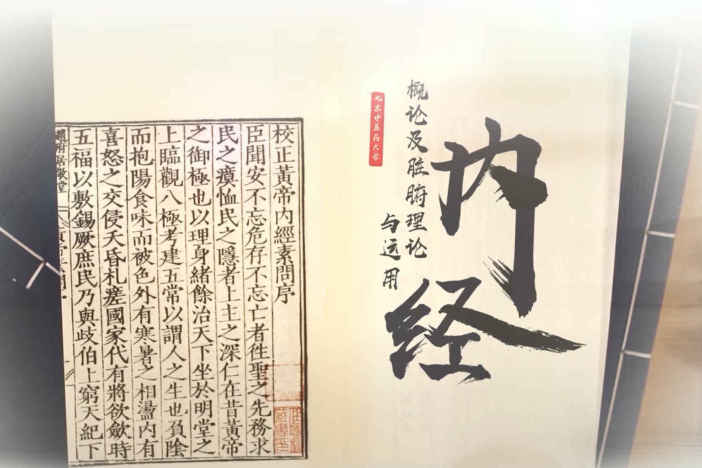 内经
概论及脏腑理论
与运用
北京中医药大学
校正黃帝內經素問序
臣聞安不忘危存不忘亡者往聖之先務求
民之瘼恤民之隱者上主之深仁在昔黃帝
之御極也以理身緒餘治天下坐於明堂之
上臨觀八極考建五常以謂人之生也負陰
而抱陽食味而被色外有寒暑之相盪內有
喜怒之交侵夭昏札瘥國家代有將欲斂時
五福以敷錫厥庶民乃與歧伯上窮天紀下